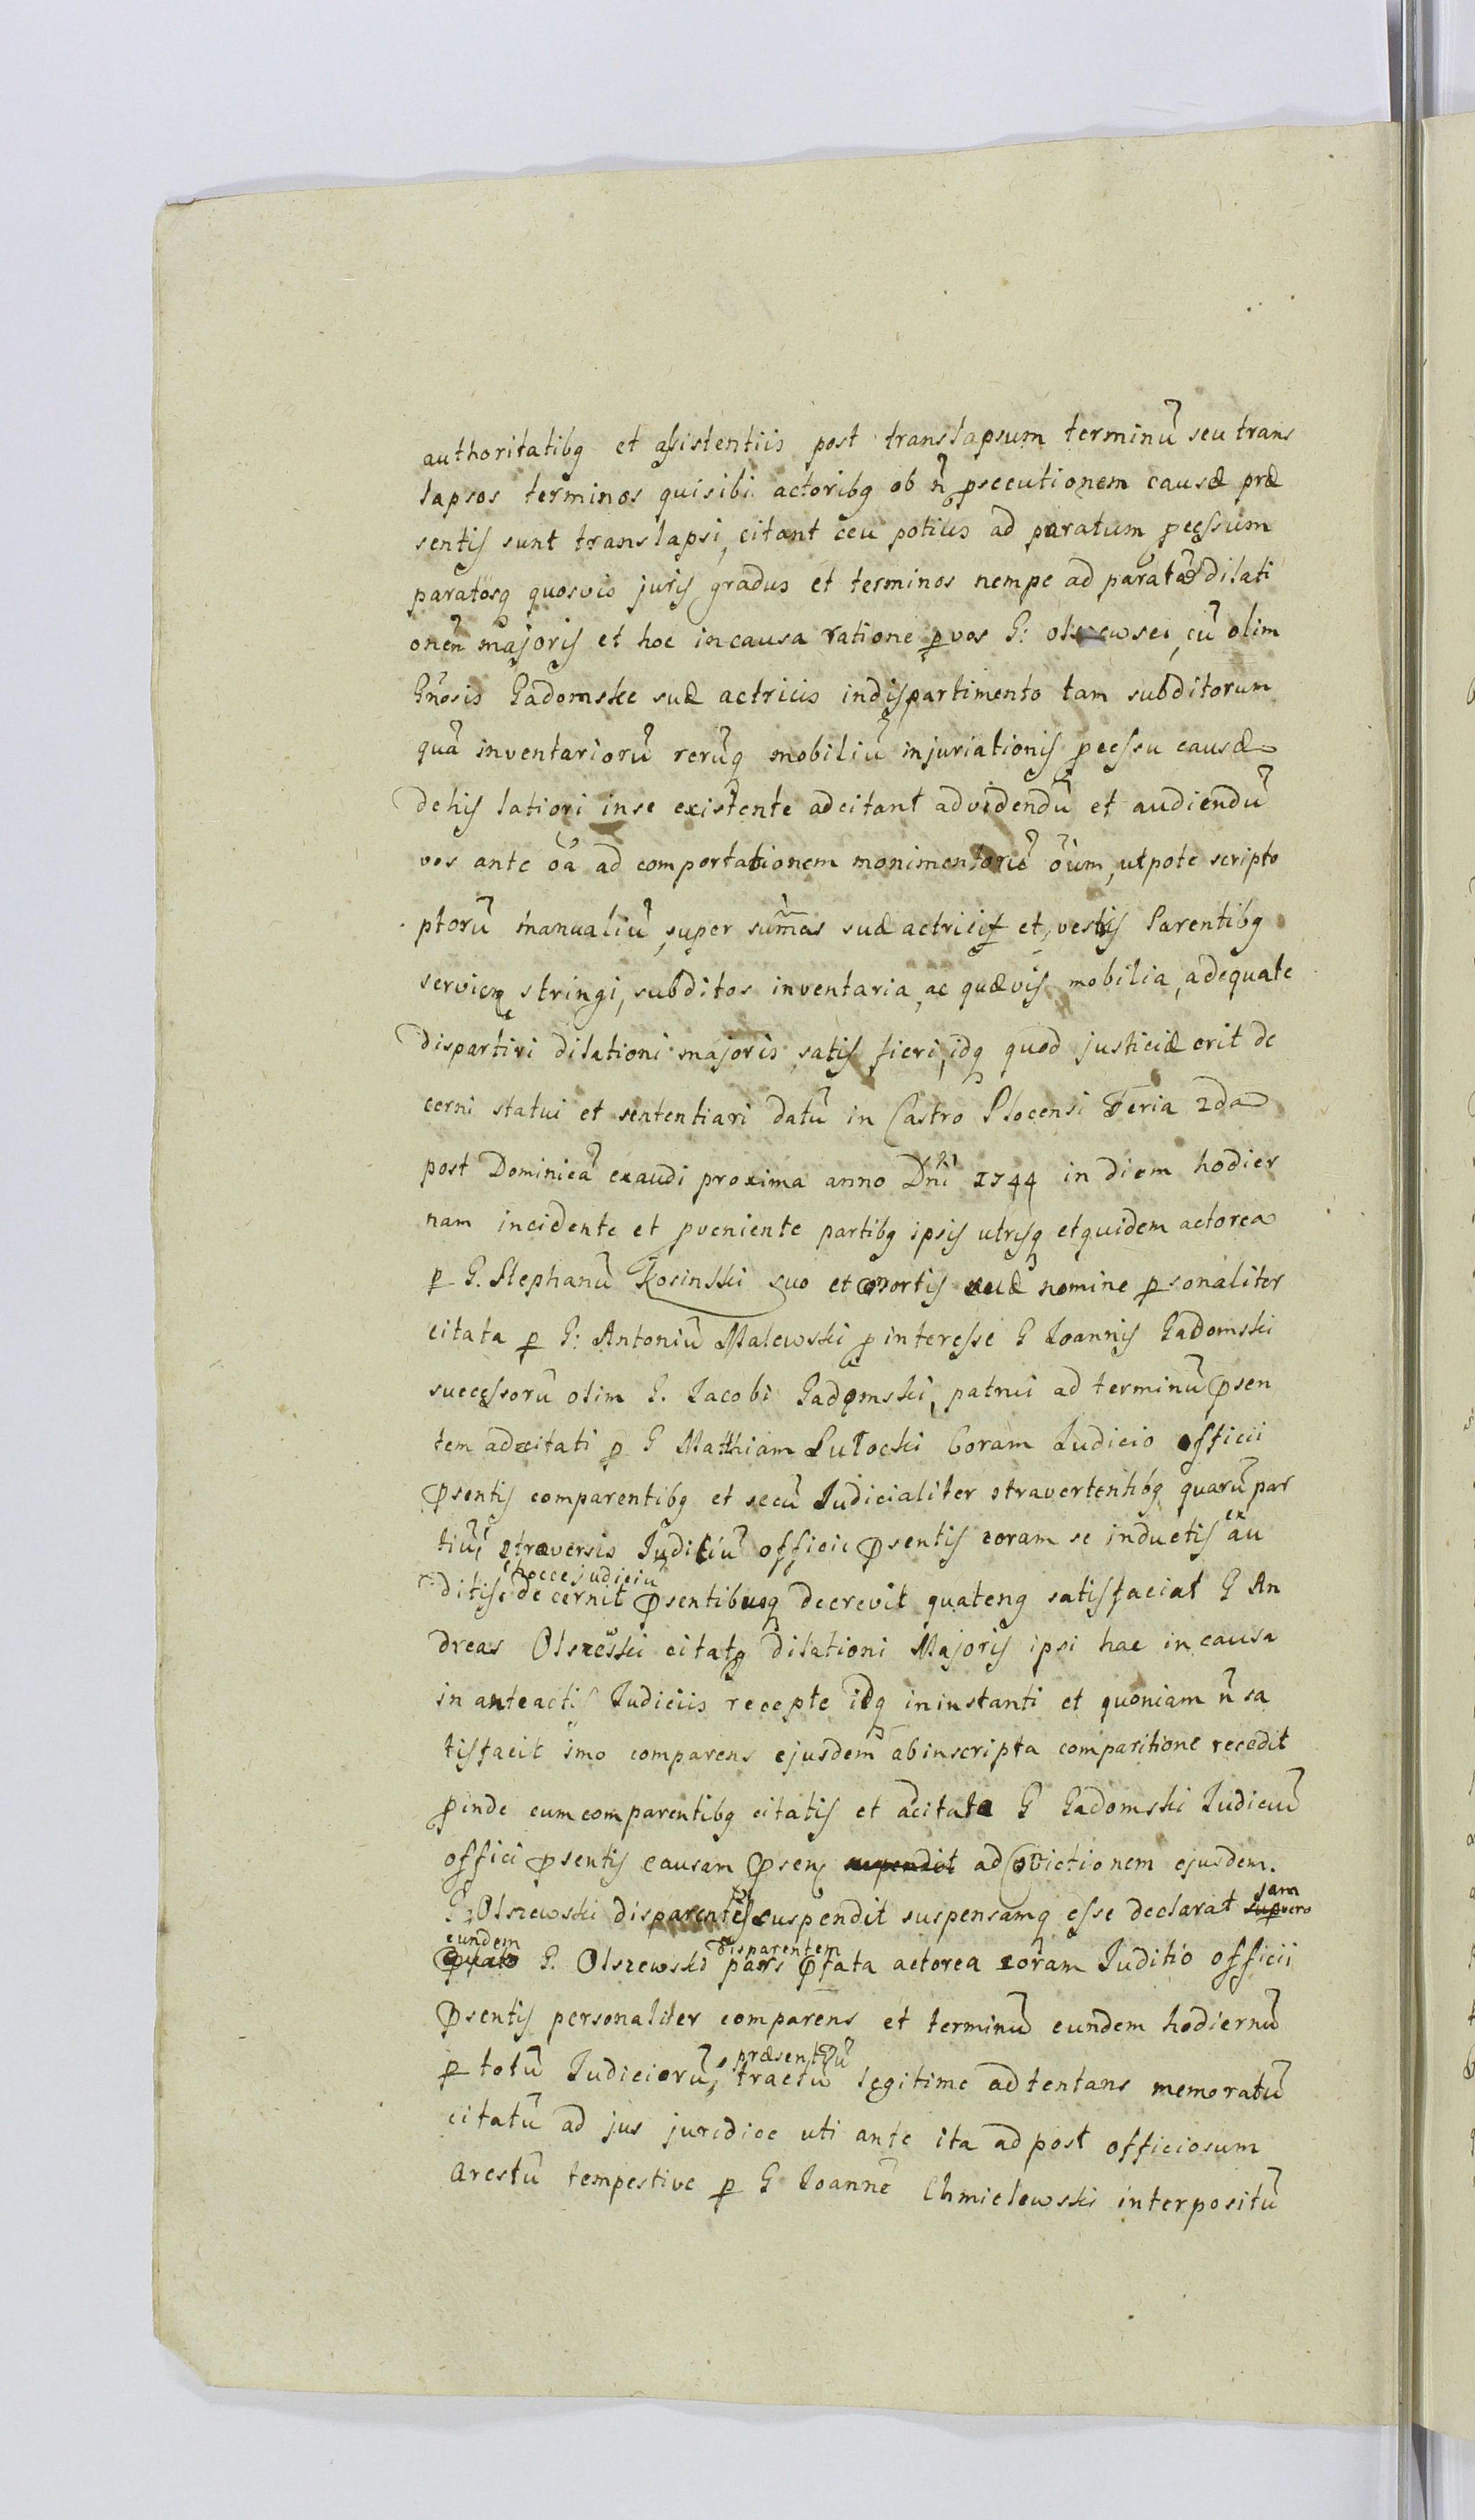 authoritatibq et assistentiis post translapsum terminũ seu trans
lapsos terminos quisibi actoribq ob ñ psecutionem causæ præ
sentis sunt translapsi, citant ceu potius ad paratum pcessum
paratosq quosvis juris gradus et terminos nempe ad paratã dilati
onem majoris et hoc in causa ratione p vos G: olszewsci, cũ olim
Gnosis Gadomske suæ actricis indispartimento tam subditorum
quã inventariorũ rerũq mobiliũ injuriationis pcessu causæ
de his latiori inse existente adcitant advidendũ et audiendũ
vos ante oã ad comportationem monimentorũ oium, utpote scripto
ptorũ manualiũ, super summas suæ actricis et vestris Parentibq
servien stringi, subditos inventaria, ac quævis mobilia, adequate
dispartiri dilationi majoris satis fieri, idq quod justiciæ erit de
cerni statui et sententiari datũ in Castro Plocensi Feria 2da
post Dominicã exaudi proxima anno Dni 1744 in diem hodier
nam incidente et pveniente partibq ipsis utrisq et quidem actorea
p G. Stephanũ Kosinski suo et csortis suæ nomine psonaliter
citata p G: Antoniũ Malewski p interesse G Ioannis Gadomski
successorũ olim G. Iacobi Gadomski, patrui ad terminũ psen
tem adcitati p G Matthiam Sutocki Coram Iudicio officii
psentis comparentibq et secũ Iudicialiter ctravertentibq quarũ par
tiũ, ctraversis Iudiciũ officii psentis coram se inductis ex au
ditisq decernit hocce judiciũ psentibusq decrevit quatenq satisfaciat G An
dreas Olszewski citatq dilationi Majoris ipsi hac in causa
in anteactis Iudiciis recepte idq ininstanti et quoniam ñ sa
tisfacit imo comparens ejusdem ab inscripta comparitione recedit
pinde cum comparentibq citatis et adcitata G Gadomski Iudiciũ
offici psentis causam psen suspendit ad cvictionem ejusdem.
G. Olszewski disparentis suspendit suspensamq esse declarat sup jam vero
eundem G. Olszewski disparentem pars pfata actorea coram Iuditio officii
psentis personaliter comparens et terminũ eundem hodiernũ
p totũ Iudiciorũ, præsentiũ tractũ legitime adtentans memoratũ
citatũ ad jus juridice uti ante ita ad post officiosum
arestũ tempestive p G Ioannẽ Chmielewski interpositũ